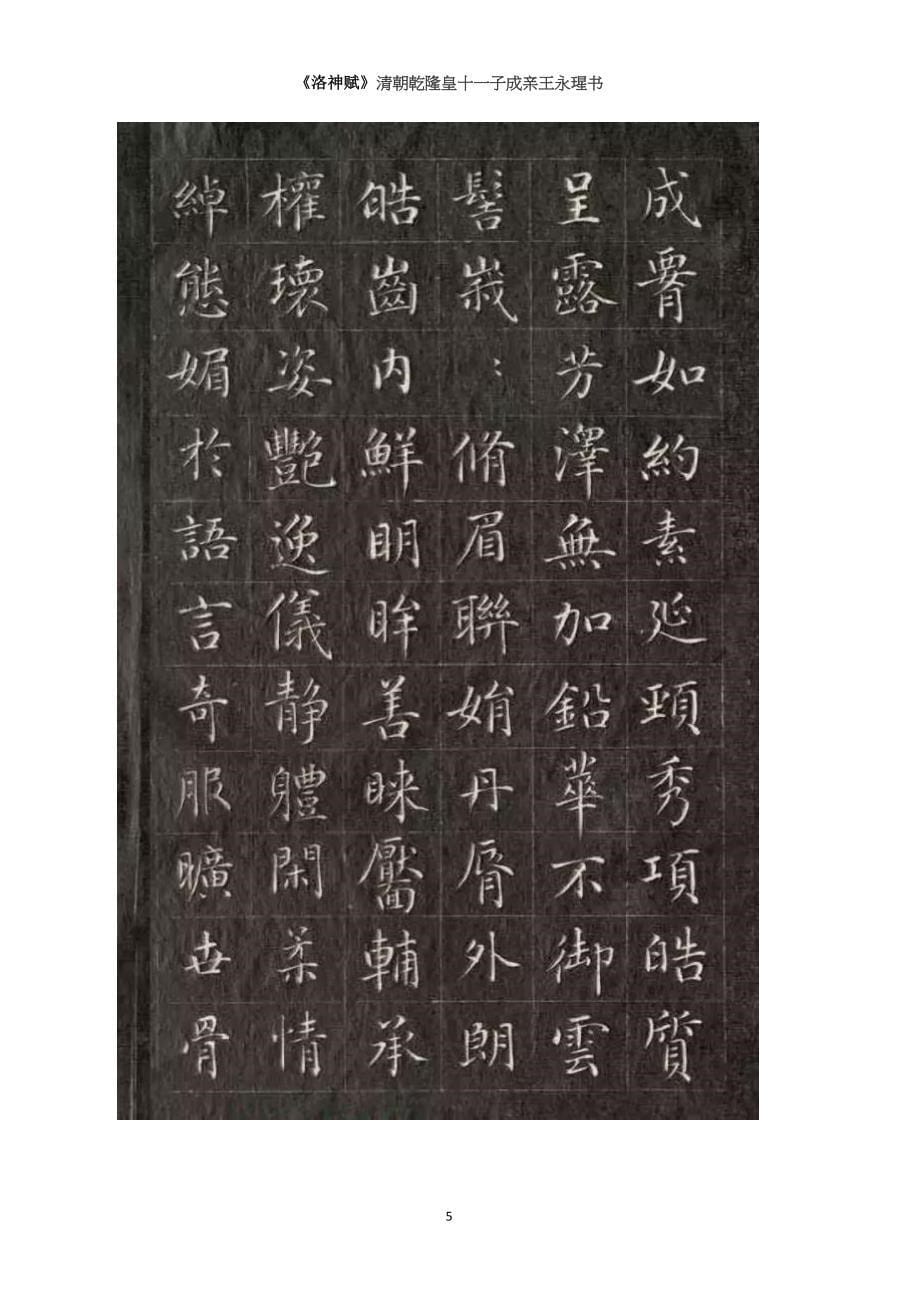 《洛神赋》清朝乾隆皇十一子成亲王永瑆书
成胥如約素延頸秀項皓質
呈露芳澤無加鉛華不御雲
髻峩〻脩眉聯娟丹脣外朗
皓齒内鮮明眸善睞靨輔承
權瓌姿艷逸儀静軆閑柔情
綽態媚於語言奇服曠世骨
5